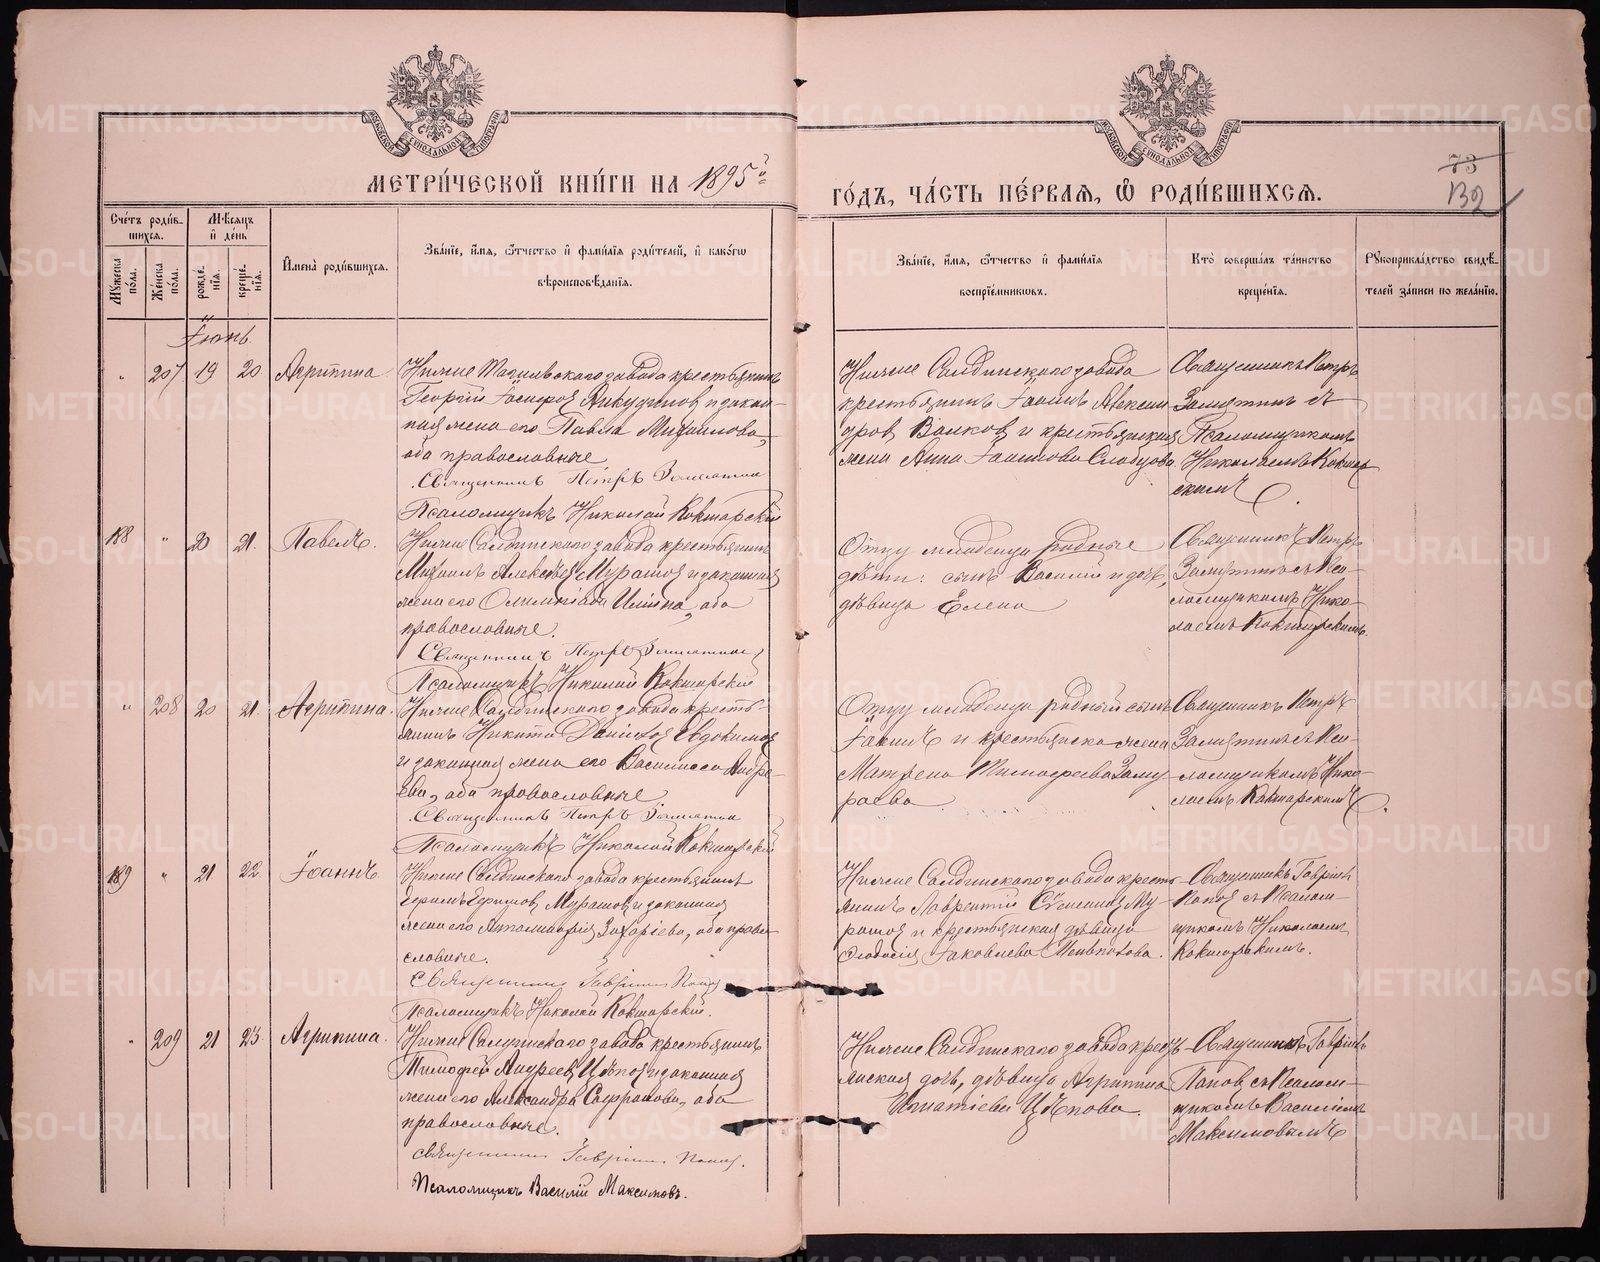 МЕТРИ́ЧЕСКОЙ КНИ́ГИ НА 1895й
ГО́ДЪ, ЧА́СТЬ ПЕ́РВАЯ, Ѿ РОДИ́ВШИХСЯ.
73
132
Сче́тъ роди́вшихся.
Мꙋ́жеска по́ла.
Же́нска по́ла.
Мѣ́сяцъ и҆ де́нь
рожде́нїя.
креще́нїя.
И҆мена̀ роди́вшихся.
Зва́нїе, и҆́мя, ѻ҆́тчество и҆ фами́лїя роди́телей, и҆ како́гѡ
вѣроисповѣ́данїя.
Зва́нїе, и҆́мя, ѻ҆́тчество и҆ фами́лїя
воспрїе́мникѡвъ.
Кто̀ соверша́лъ та́инство
креще́нїя.
Рꙋкоприкла́дство свидѣ́телей за́писи по жела́нїю.
Іюнь.
" 207 19 20 Агрипина
Нижне Тагильскаго завода крестьянинъ
Георгій Іосифов Аникудинов и закон-
ная жена его Павла Михаилова,
оба православные
Священникъ Петръ Замятин
Псаломщикъ Николай Кокшарскій
Нижне Салдинскаго завода
крестьянинъ Іаким Алексан-
дров Волков и крестьянская
жена Анна Слобцова
Священникъ Петръ
Замятинъ съ
Псаломщикомъ
Николаемъ Кокшар-
скимъ
188 " 20 21. Павелъ.
Нижне Салдинскаго завода крестьянинъ
Михаилъ Алексѣев Мурашов и законная
жена его Олимпіада Ильина, оба
православные.
Священникъ Петръ Замятин
Псаломщикъ Николай Кокшарскій
Отцу младенца родные
дѣти: сынъ Василій и дочь,
дѣвица Елена
Священникъ Петръ
Замятинъ съ Пса-
ломщикомъ Нико-
лаемъ Кокшарскимъ.
" 208 20 21. Агрипина.
Нижне Салдинскаго завода кресть-
янинъ Никита Данилов Евдокимов
и законная жена его Василисса Андре-
ева, оба православные
Священникъ Петръ Замятин
Псаломщикъ Николай Кокшарскій
Отцу младенца родный сынъ
Іакимъ и крестьянска жена
Матрена Тимофеева Заму-
раева
Священникъ Петръ
Замятинъ съ Пса-
ломщикомъ Нико-
лаемъ Кокшарскимъ.
189 " 21 22 Іоаннъ
Нижне Салдинскаго завода крестьянинъ
Ефимъ Ефимов Мурашов и законная
жена его Аполлинарія Захаріева, оба право-
славные.
Священник Гавріил Попов
Псаломщикъ Николай Кокшарскій.
Нижне Салдинскаго завода кресть-
янинъ Лаврентій Стефанов Му-
рашов и крестьянская дѣвица
Феодосія Іаковлева
Священникъ Гавріилъ
Попов съ Псалом-
щикомъ Николаемъ
Кокшарскимъ.
" 209 21 23. Агрипина.
Нижне Салдинскаго завода крестьянинъ
Тимофей Андреев Цѣпов и законная
жена его Александра Сафронова, оба
православные.
Священник Гавріил Попов.
Псаломщикъ Василій Максимовъ.
Нижне Салдинскаго завода кресть-
янская дочь, дѣвица Агрипина
Игнатіева Цѣпова.
Священникъ Гавріилъ
Попов съ Псалом-
щикомъ Василіемъ
Максимовымъ
METRIKI.GASO-URAL.RU